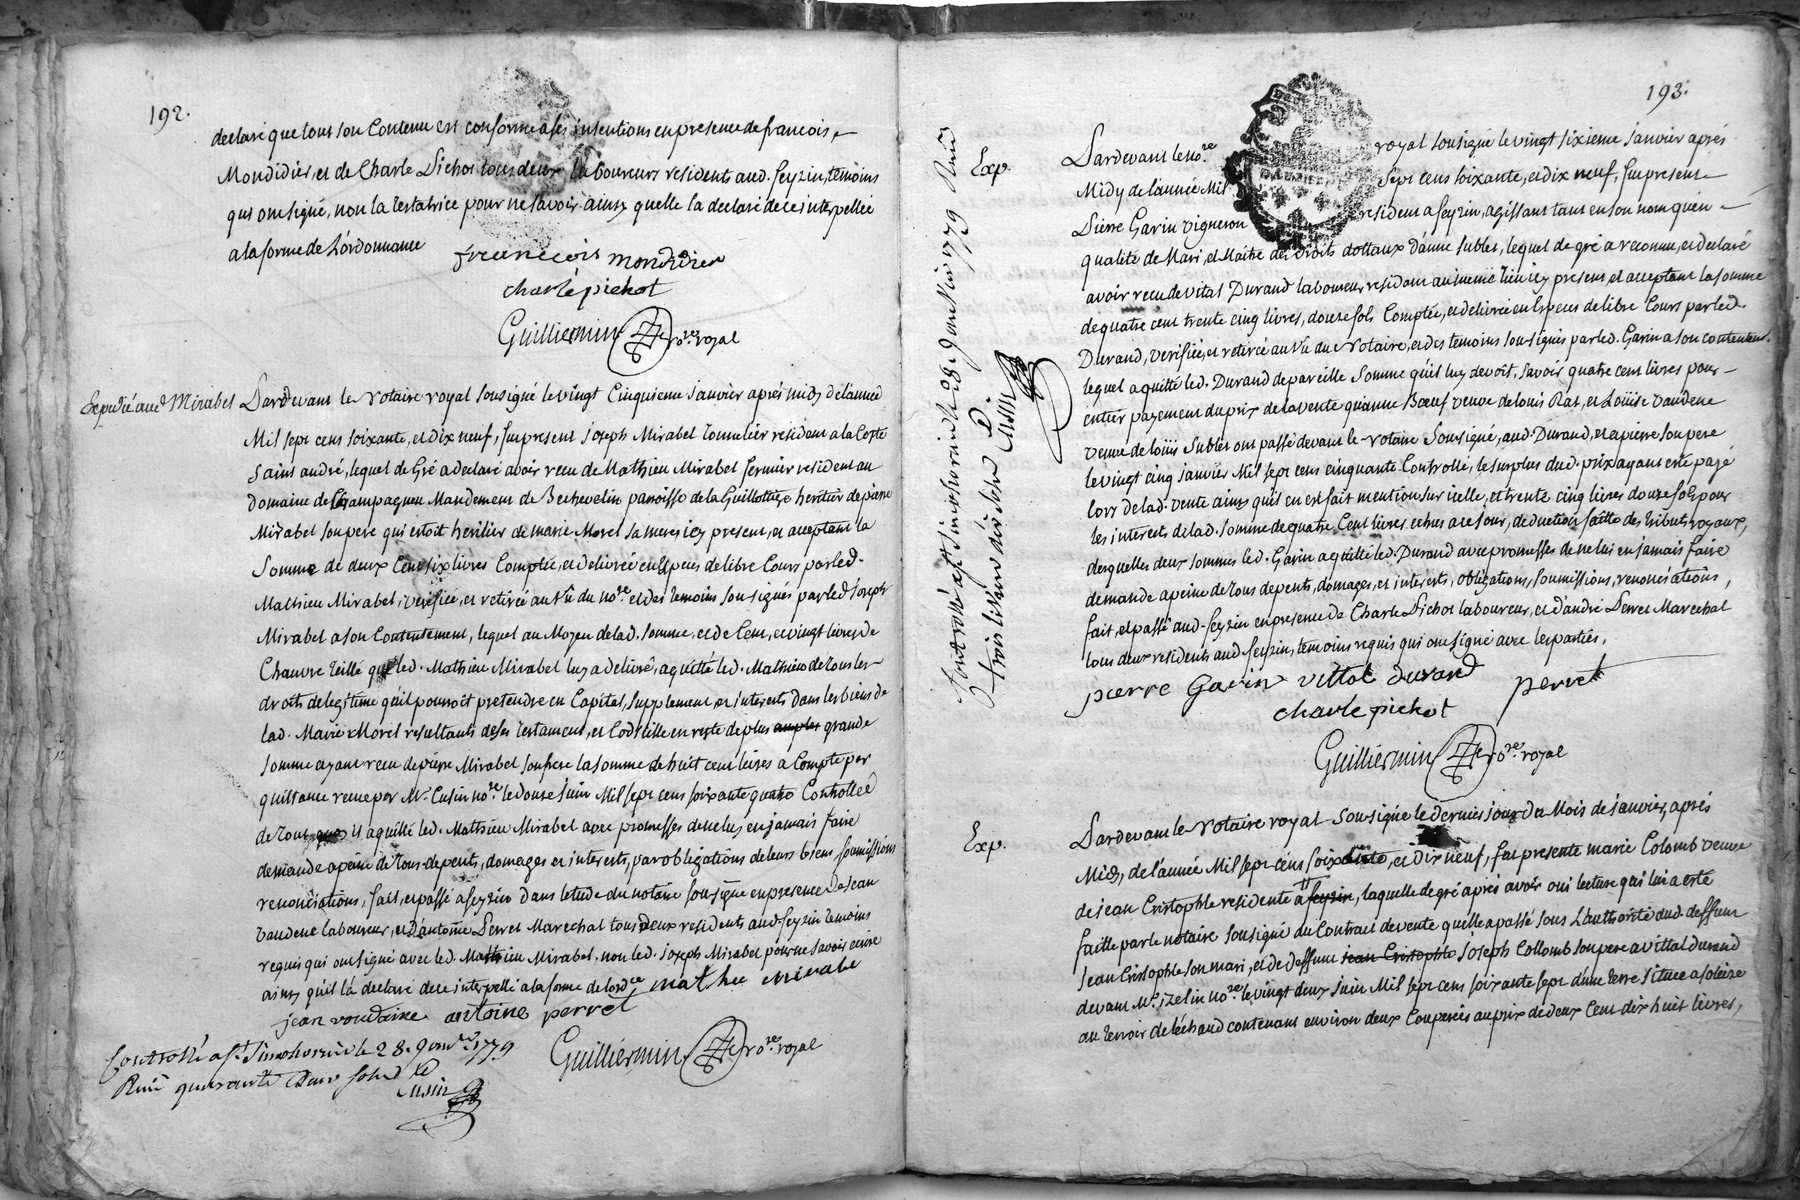 192.
declaré que tout son Contenu est conforme a ses intentions en presence de francois
Mondidier, et de Charle Pichot tous deux laboureurs residents aud. feyzin, témoins
qui ont signé, non la testatrice pour ne savoir ainsy quelle la declaré de ce interpellée
a la forme de L'ordonnance
franecois mondidier
charle pichot
Guilliermin no.re royal
Expedié aud Mirabel
Pardevant le Notaire royal sousigné le vingt Cinquieme janvier aprés midy de l'année
Mil sept cens soixante, et dix neuf, fut present joseph Mirabel Tonnelier resident a la Coste
saint andré, lequel de Gré a declaré avoir recu de Mathieu Mirabel fermier resident au
domaine de Champagneu Mandement de Bechevelin parroisse de la Guillottiere heritier de pierre
Mirabel son pere qui estoit heritier de marie Morel sa mere icy present, et acceptant la
Somme de deux Cent six livres Comptée, et delivrée en Especes de libre Cours par led.
Mathieu Mirabel, verifiée, et retirée au Vû du no.re et des temoins sousignés par led joseph
Mirabel a son Contentement, lequel au Moyen de lad. somme, et de Cent, et vingt livres de
Chanvre teillé que led. Mathieu Mirabel luy a delivré, a quitté led. Mathieu de tous les
droits de legitime qu'il pourroit pretendre en Capital, supplement, et interests dans les biens de
lad. Marie Morel resultants de ses testament, et Codicille en reste de plus amples grande
somme ayant recu de pierre Mirabel son frere la somme de huit cent livres a Compte par
quittance recue par M.e Cusin no.re le douze juin Mil sept cens soixante quatre Controllée
de tout quoy il a quitté led. Mathieu Mirabel avec promesses de ne luy en jamais faire
demande a peine de tous depents, domages et interests, par obligations de leurs biens, soumissions
renonciations, fait, et passé a feyzin dans l'etude du notaire sousigné en presence de jean
Vaudene laboureur, et d'antoine Perret Marechal tous deux residents aud feyzin temoins
requis qui ont signé avec led. Mathieu Mirabel, non led. joseph Mirabel pour ne savoir ecrire
ainsy quil la declaré de ce interpellé a la forme de lord.ce mathieu mirabel
jean voudaine antoine perret
Guilliermin no.re royal
Controllé a st Simphorien le 28. janv.r 1779
Reçu quarante deux sols
Cusin
193.
Exp.
Pardevant le no.re royal sousigné le vingt sixieme janvier aprés
Midy de l'année Mil sept cens soixante, et dix neuf, fut present
Pierre Garin vigneron resident a feyzin, agissant tant en son nom qu'en
qualité de Mari, et Maitre des droits dottaux d'anne Sublet, lequel de gré a reconnu, et declaré
avoir recu de Vital Durand laboureur resident au meme lieu icy present et acceptant la somme
de quatre cent trente cinq livres, douze sols Comptée, et delivrée en Especes de libre Cours par led.
Durand, verifiée, et retirée au Vû du Notaire, et des temoins sousignés par led. Garin a son contentem.t
lequel a quitté led. Durand de pareille Somme qu'il luy devoit, savoir quatre cent livres pour
entier payement du prix de la vente qu'anne Bœuf veuve de louis Rat, et Loüise Vaudene
veuve de loüis Sublet ont passé devant le Notaire Sousigné, aud. Durand, et a pierre son pere
le vingt cinq janvier Mil sept cens cinquante Controllé, le surplus dud. prix ayant esté payé
lors de lad. vente ainsy qu'il en est fait mention sur icelle, et trente cinq livres douze sols pour
les interest de lad. somme de quatre Cent livres echus a ce jour, deduction faitte des tributs royaux,
desquelles deux sommes led. Garin a quitté led. Durand avec promesses de ne lui en jamais faire
demande a peine de tous depents, domages, et interests, obligations, soumissions, renonciations,
fait, et passé aud. feyzin en presence de Charle Pichot laboureur, et d'andré Perret Marechal
tous deux residents aud feyzin, temoins requis qui ont signé avec les parties.
pierre Garin vittal durand
charle pichot perret
Guilliermin no.re royal
Controllé a st Simphorien le 28. janvier 1779 Reçu
trois livres dix sols
Cusin
Exp.
Pardevant le Notaire royal Sousigné le dernier jour du Mois de janvier, aprés
Midy, de l'année Mil sept cens soixante, et dix neuf, fut presente marie Colomb veuve
de jean Cristophle residente a feyzin, laquelle de gré aprés avoir oui lecture qui lui a esté
faitte par le notaire sousigné du Contract de vente quelle a passé sous L'authorité dud. deffunt
jean Cristophle son mari, et de deffunt jean Cristophle joseph Collomb son pere a vittal durand
devant M.e izelin no.re le vingt deux juin Mil sept cens soixante sept d'une terre située a soleize
au terroir de l'échaud contenant environ deux Couperées au prix de deux Cent dix huit livres,